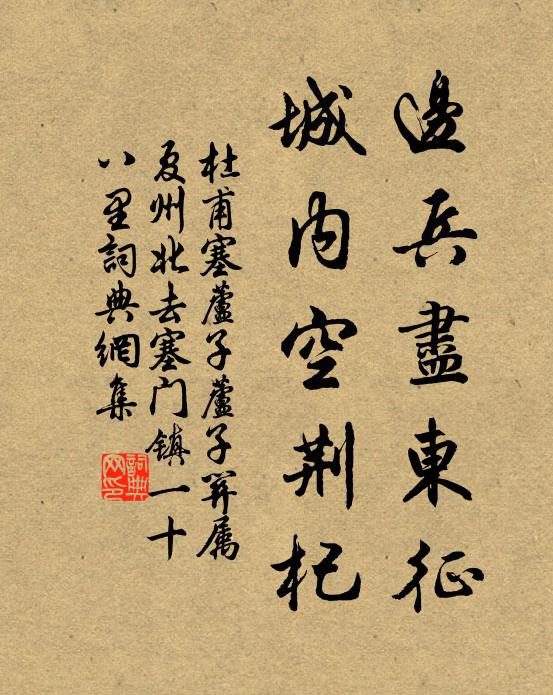 邊兵盡東征
城內空荆杞
杜甫塞蘆子蘆子関属
夏州北去塞门镇一十
八里詞典網集
詞典
网印